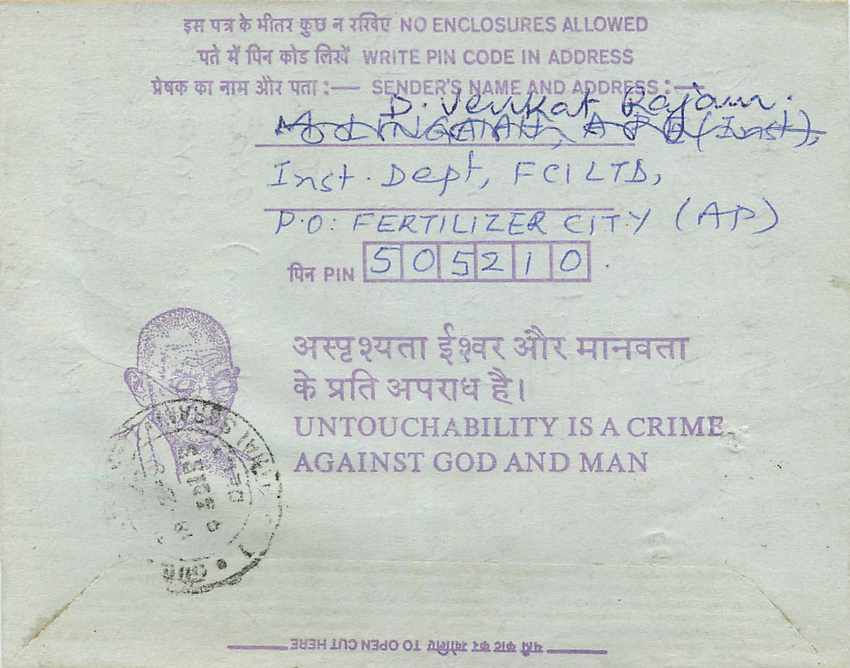 इस पत्र के भीतर कुछ न रखिए NO ENCLOSURES ALLOWED
पते में पिन कोड लिखें WRITE PIN CODE IN ADDRESS
प्रेषक का नाम और पता :— SENDER'S NAME AND ADDRESS :—
D. Venkat Rajam.
Inst. Dept, FCI LTD,
P.O: FERTILIZER CITY (AP)
पिन PIN 505210
अस्पृश्यता ईश्वर और मानवता
के प्रति अपराध है।
UNTOUCHABILITY IS A CRIME
AGAINST GOD AND MAN
यहाँ काट कर खोलिए TO OPEN CUT HERE